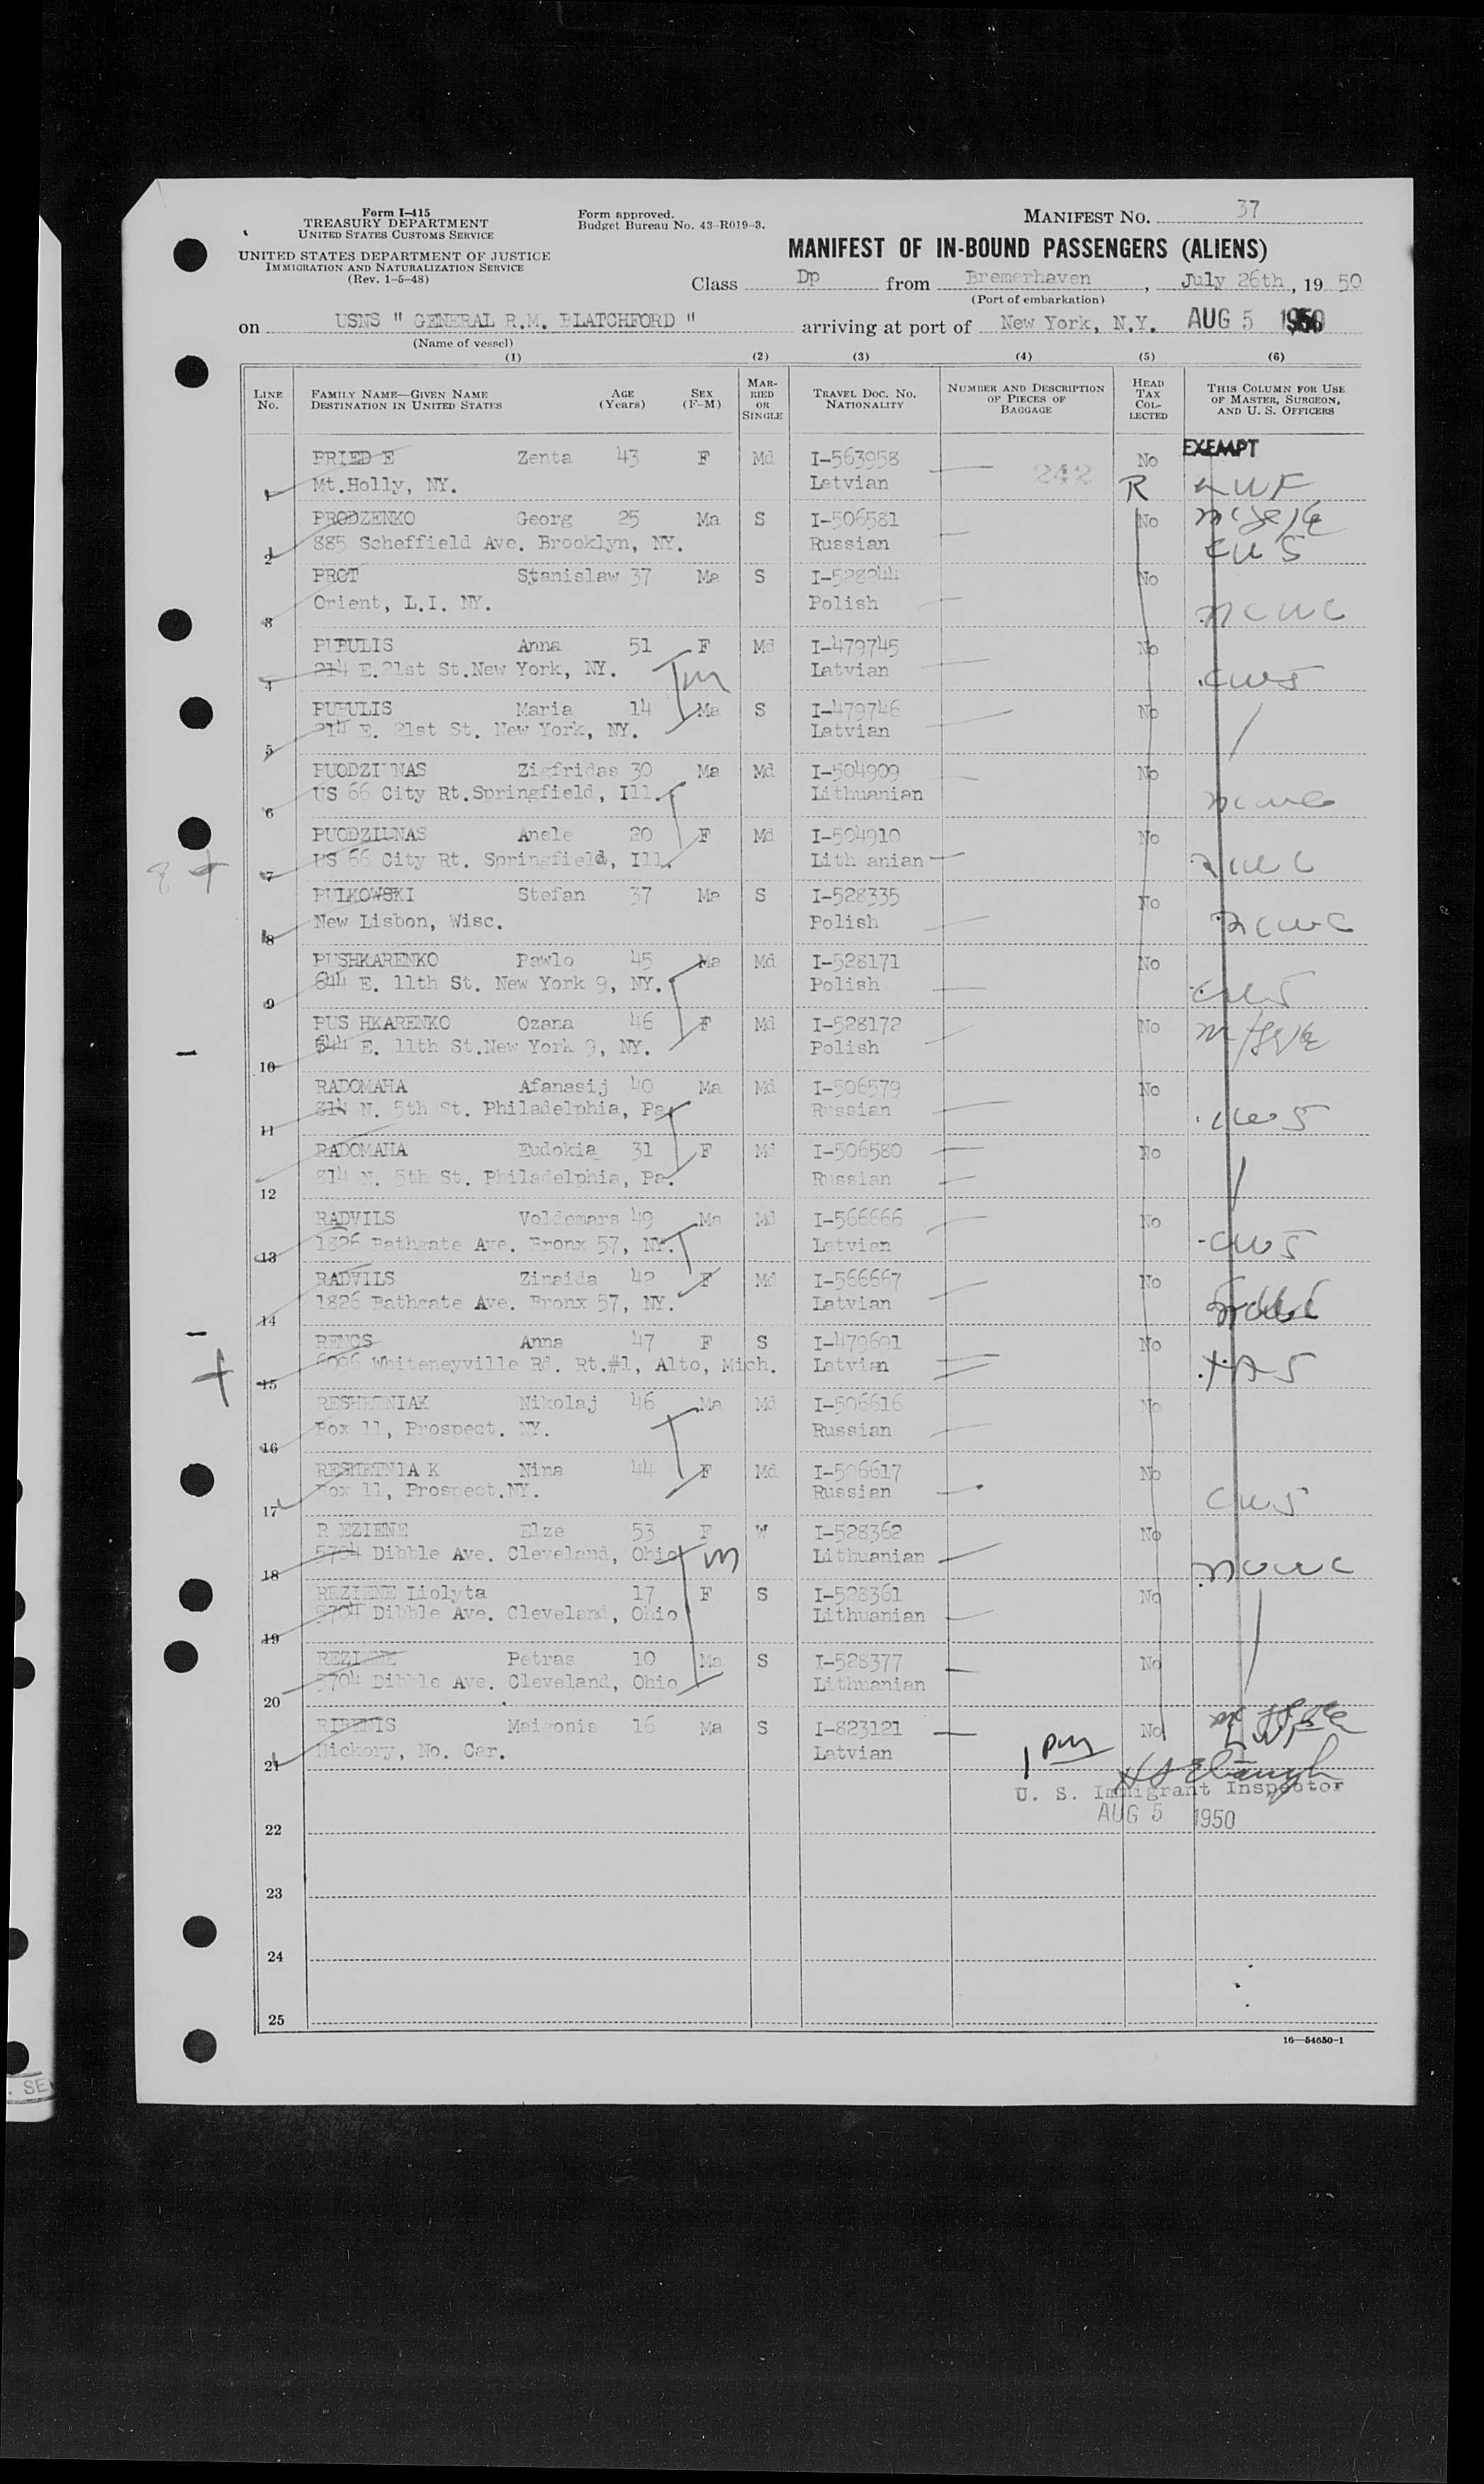 Form I-415
TREASURY DEPARTMENT
UNITED STATES CUSTOMS SERVICE
UNITED STATES DEPARTMENT OF JUSTICE
IMMIGRATION AND NATURALIZATION SERVICE
(Rev. 1-5-48)
Form approved.
Budget Bureau No. 43-R019-3.
MANIFEST NO. 37
MANIFEST OF IN-BOUND PASSENGERS (ALIENS)
Class Dp from Bremerhaven, July 26th, 19 50
(Port of embarkation)
on USNS " GENERAL R.M. BLATCHFORD " arriving at port of New York, N.Y. AUG 5 1950
(Name of vessel)
(1) (2) (3) (4) (5) (6)
LINE NO. FAMILY NAME—GIVEN NAME DESTINATION IN UNITED STATES AGE (Years) SEX (F-M) MARRIED OR SINGLE TRAVEL DOC. NO. NATIONALITY NUMBER AND DESCRIPTION OF PIECES OF BAGGAGE HEAD TAX COLLECTED THIS COLUMN FOR USE OF MASTER, SURGEON, AND U. S. OFFICERS
EXEMPT
PRIED E Zenta 43 F Md I-563958 242 No
1 Mt.Holly, NY. Latvian R LWF
PRODZENKO Georg 25 Ma S I-506581 No
2 885 Scheffield Ave. Brooklyn, NY. Russian CWS
PROT Stanislaw 37 Ma S I-528244 No
3 Orient, L.I. NY. Polish NCWC
PUPULIS Anna 51 F Md I-479745 No
4 214 E.21st St.New York, NY. Latvian CWS
PUPULIS Maria 14 Ma S I-479746 No
5 214 E. 21st St. New York, NY. Latvian
PUODZIUNAS Zigfridas 30 Ma Md I-504909 No
6 US 66 City Rt.Springfield, Ill. Lithuanian NCWC
PUODZIUNAS Anele 20 F Md I-504910 No
7 US 66 City Rt. Springfield, Ill. Lithuanian NCWC
PULKOWSKI Stefan 37 Ma S I-528335 No
8 New Lisbon, Wisc. Polish NCWC
PUSHKARENKO Pawlo 45 Ma Md I-528171 No
9 644 E. 11th St. New York 9, NY. Polish CWS
PUS HKARENKO Ozana 46 F Md I-528172 No
10 644 E. 11th St.New York 9, NY. Polish
RADOMAHA Afanasij 40 Ma Md I-506579 No
11 814 N. 5th St. Philadelphia, Pa. Russian CWS
RADOMAHA Eudokia 31 F Md I-506580 No
12 814 N. 5th St. Philadelphia, Pa. Russian
RADVILS Voldemars 49 Ma Md I-566666 No
13 1826 Bathgate Ave. Bronx 57, NY. Latvian CWS
RADVILS Zinaida 42 F Md I-566667 No
14 1826 Bathgate Ave. Bronx 57, NY. Latvian
RENCS Anna 47 F S I-479691 No
15 6096 Whiteneyville Rd. Rt.#1, Alto, Mich. Latvian
RESHETNIAK Nikolaj 46 Ma Md I-506616 No
16 Box 11, Prospect. NY. Russian
RESHETNIA K Nina 44 F Md I-506617 No
17 Box 11, Prospect.NY. Russian CWS
R EZIENE Elze 53 F W I-528362 No
18 5704 Dibble Ave. Cleveland, Ohio Lithuanian NCWC
REZIENE Liolyta 17 F S I-528361 No
19 5704 Dibble Ave. Cleveland, Ohio Lithuanian
REZIENE Petras 10 Ma S I-528377 No
20 5704 Dibble Ave. Cleveland, Ohio Lithuanian
RIBENIS Maigonis 16 Ma S I-823121 No
21 Hickory, No. Car. Latvian LWF
U. S. Immigrant Inspector
AUG 5 1950
22
23
24
25
16—54650-1
. SE